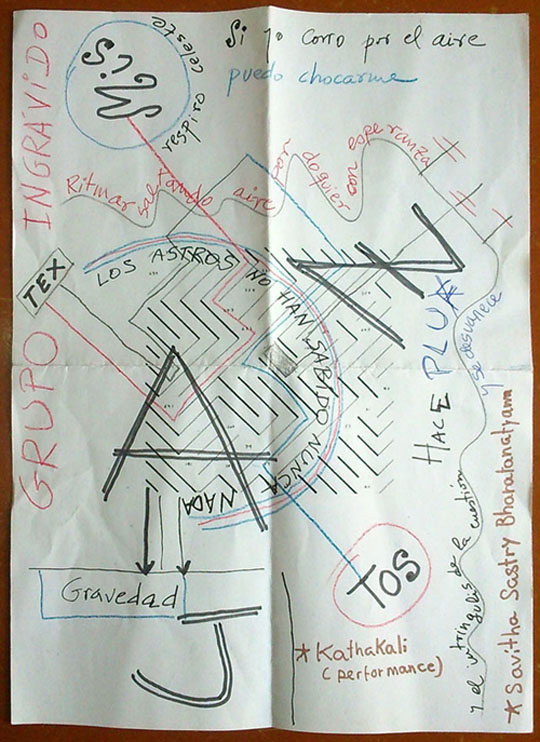 GRUPO INGRÁVIDO
MUSiC
respiro celeste
Si yo corro por el aire
puedo chocarme
Ritmar saltando aire por doquier con esperanza
TEX
LOS ASTROS NO HAN SABIDO NUNCA NADA
A
HACE PLUX
y se desvanece
y el intríngulis de la cuestión
TOS
Gravedad
J
* Kathakali
(performance)
* Savitha Sastry Bharatanatyam